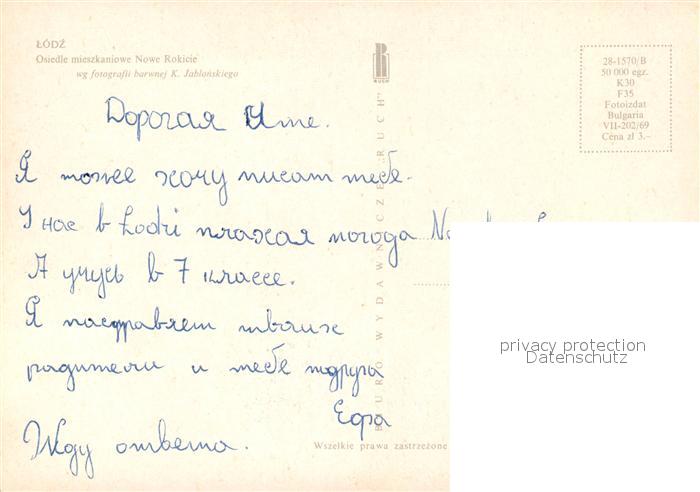 ŁÓDŹ
Osiedle mieszkaniowe Nowe Rokicie
wg fotografii barwnej K. Jabłońskiego
RUCH
28-1570/B
50 000 egz.
K30
F35
Fotoizdat
Bulgaria
VII-202/69
Cena zł 3.–
BIURO WYDAWNICZE „RUCH”
Дорогая Уте.
Я тоже хочу писат тебе.
У нас в Łodzi плахая погода
Я учусь в 7 классе.
Я поздравляем твоих
радители и тебе подруга
Ева
Жду ответа.
Wszelkie prawa zastrzeżone
privacy protection
Datenschutz